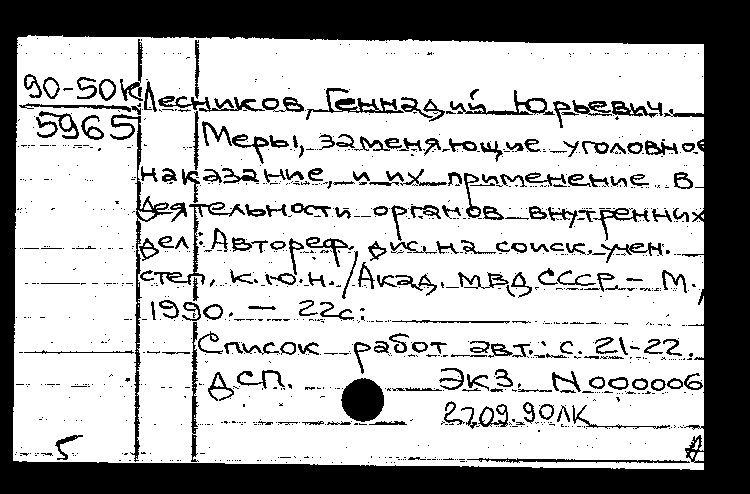 90-50К
5965
Лесников, Геннадий Юрьевич.
Меры, заменяющие уголовное
наказание, и их применение в
деятельности органов внутренних
дел: Автореф. дис. на соиск. учен.
степ. к.ю.н. / Акад. МВД СССР. – М.,
1990. — 22с.
Список работ авт.: с. 21-22.
ДСП. Экз. N 000006
27.09.90 ЛК
5